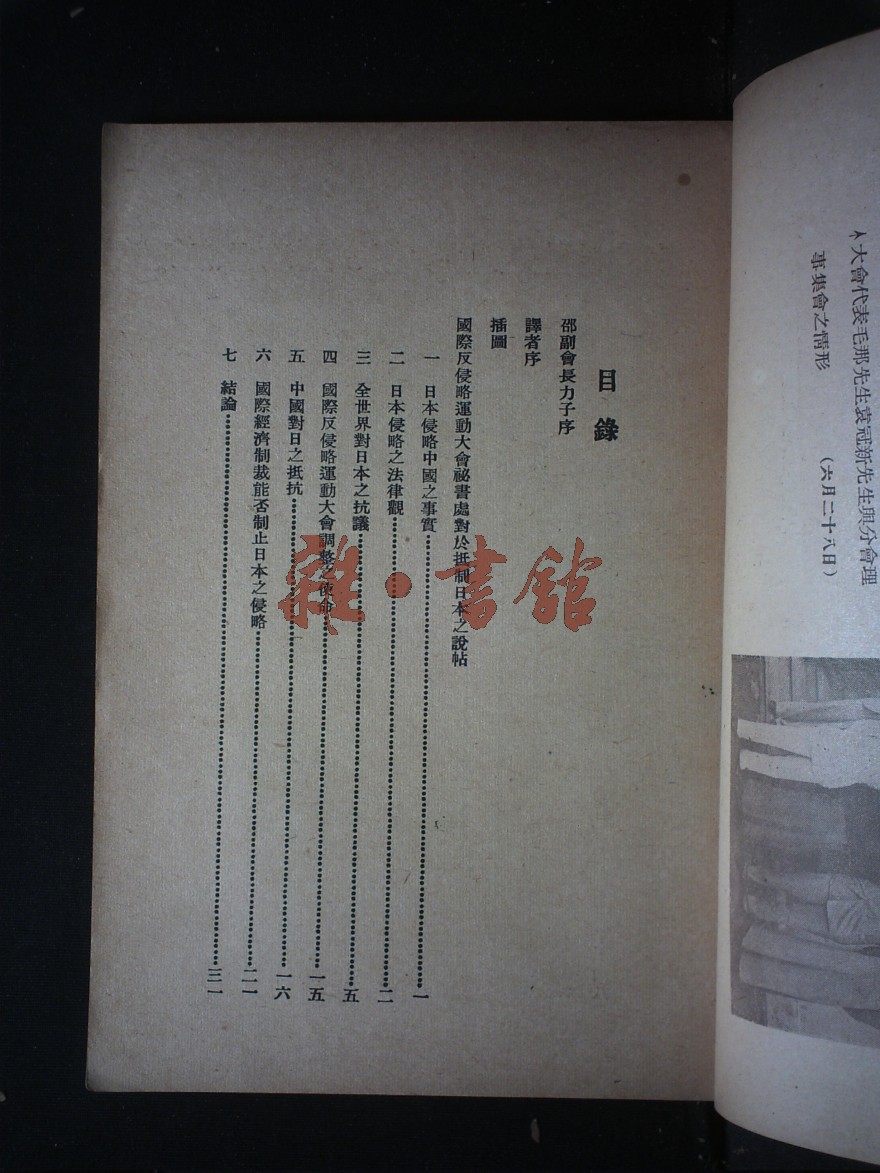 大會代表毛那先生袁冠新先生與分會理
事集會之情形
(六月二十八日)
目錄
邵副會長力子序
譯者序
插圖
國際反侵略運動大會祕書處對於抵制日本之說帖
一 日本侵略中國之事實……一
二 日本侵略之法律觀……二
三 全世界對日本之抗議……五
四 國際反侵略運動大會調整之使命……一五
五 中國對日之抵抗……一六
六 國際經濟制裁能否制止日本之侵略……二一
七 結論……三一
雜·書館